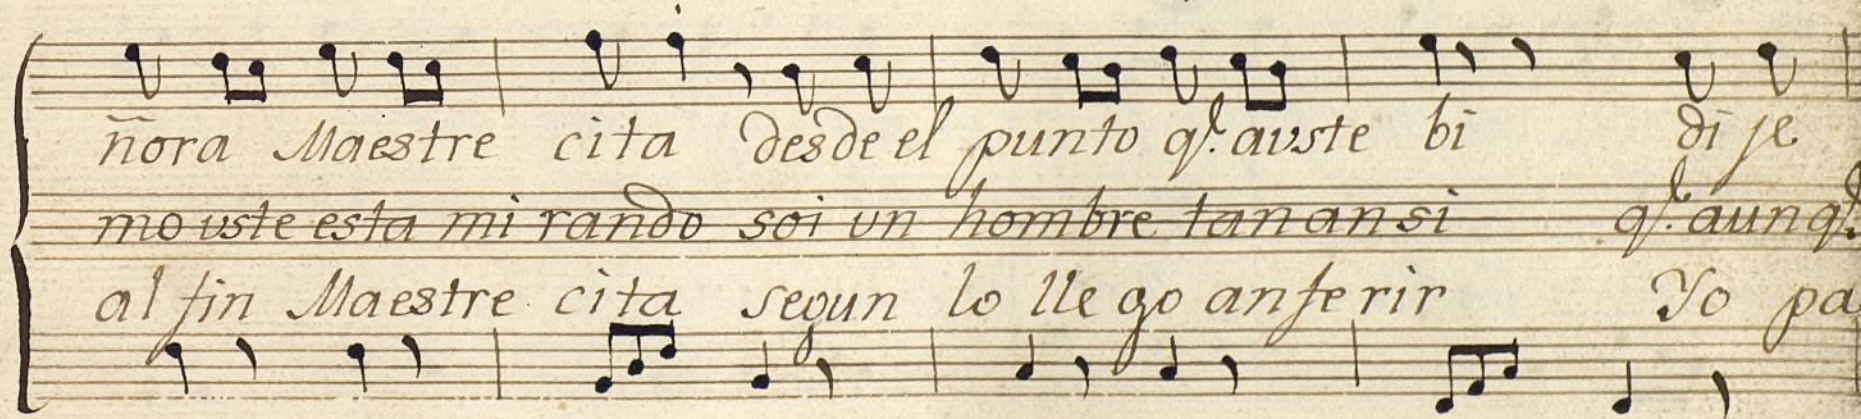 ñora Maestre cita desde el punto qᵉ. auste bi di je
mo uste esta mi rando soi un hombre tan an si qᵉ. aunqᵉ.
al fin Maestre cita segun lo lle go an fe rir Yo pa